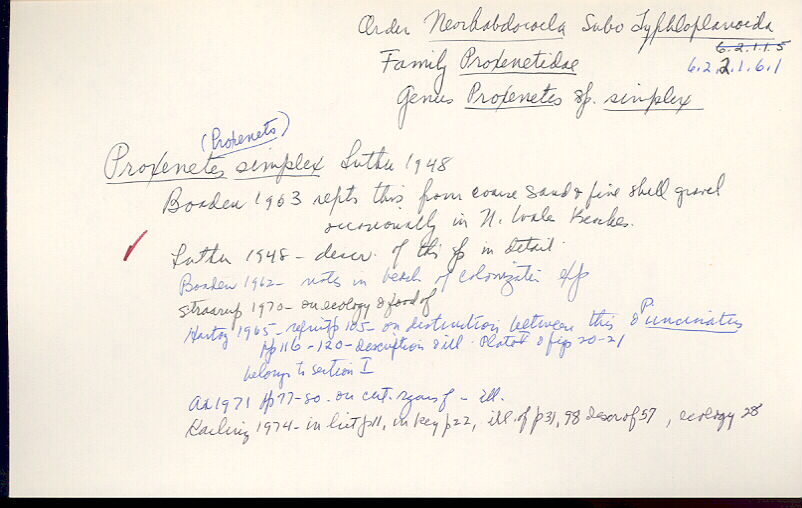 Order Neorhabdocoela Subo Typhloplanoida
6.2.1.1.5
Family Proxenetidae 6.2.2.1.6.1
Genus Proxenetes sp. simplex
(Proxenets)
Proxenetes simplex Luther 1948
Boaden 1963 repts this from coarse sand & fine shell gravel
occasionally in N. Wales Beaches.
Luther 1948 - descr. of this sp in detail.
Boaden 1962 - notes in beach of colonization exp
Straarup 1970 - on ecology & food of
Hartog 1965 - reprint p 105 - on distinction between this & P uncinatus
pp 116-120 - description & ill. & figs 20-21
belongs to section I
Ax 1971 pp 77-80. on cut. organ of - ill.
Karling 1974 - in list p 11, in key p 22, ill. of p 31, 98 descr of 57, ecology 28